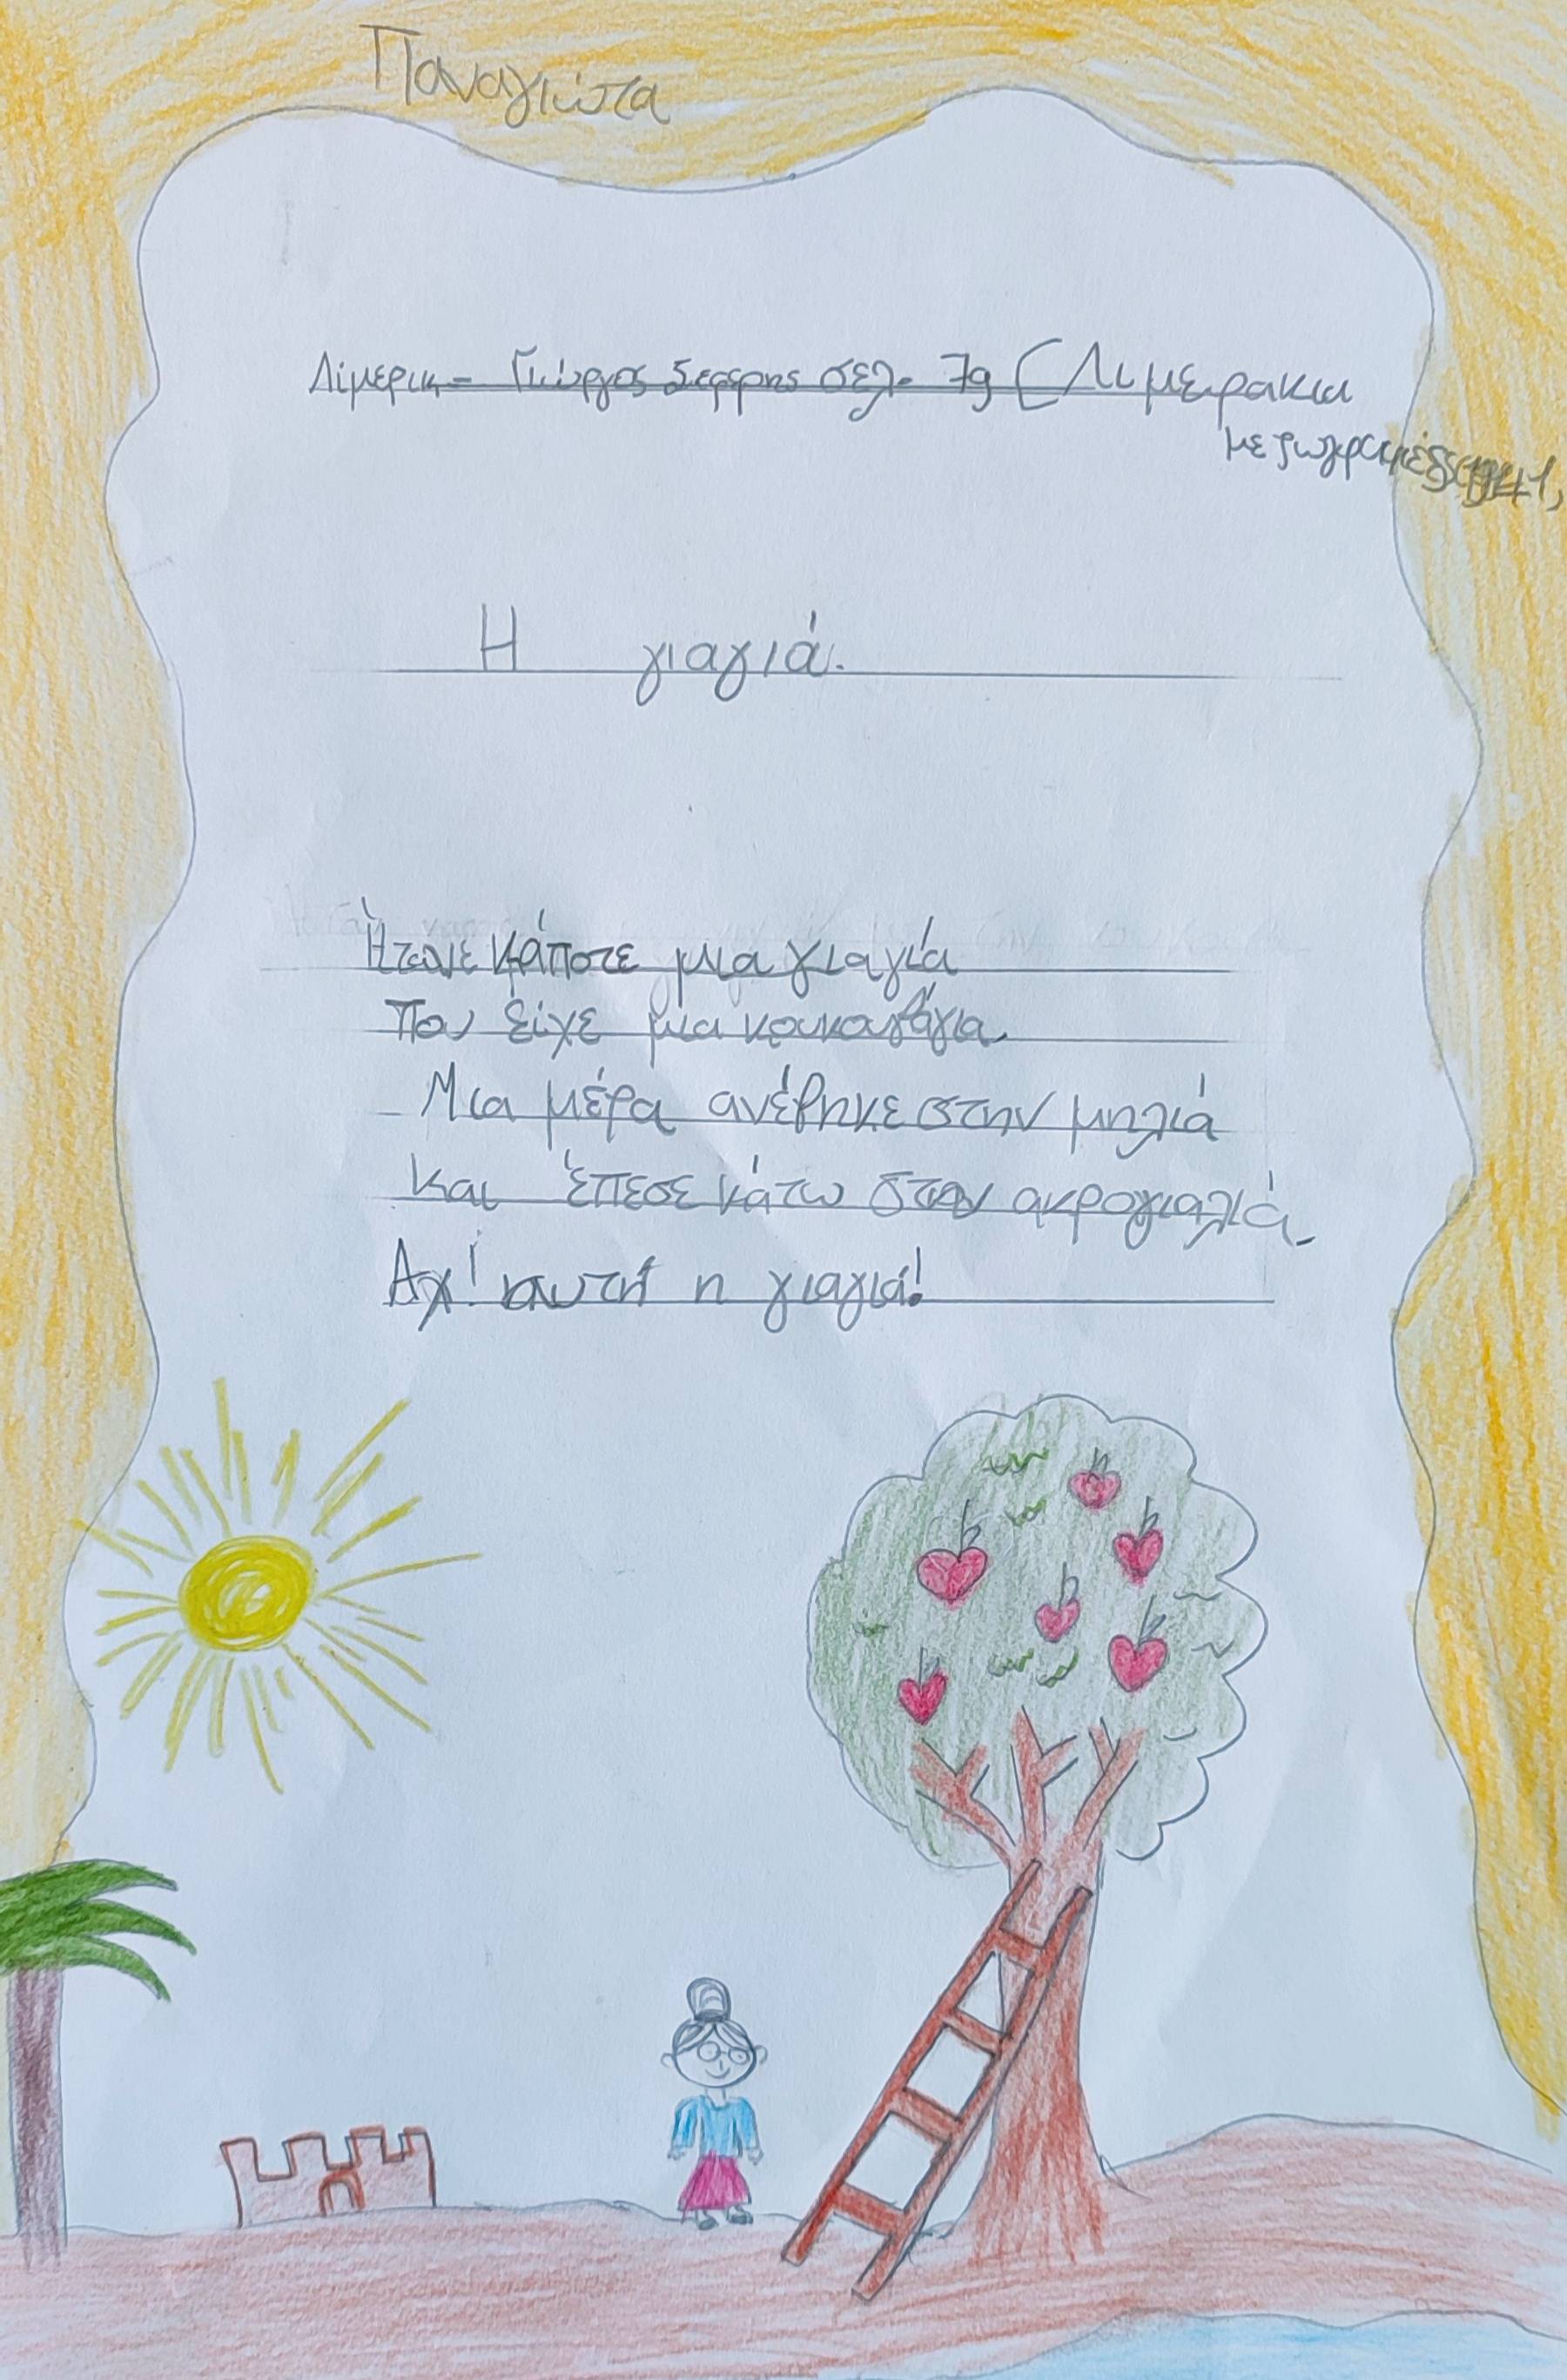 Παναγιώτα
Λίμερικ - Γιώργος Σεφέρης σελ. 79 (Λιμεράκια
με ζωγραφιές
Η γιαγιά.
Ήτανε κάποτε μια γιαγιά
Που είχε μια κουκουβάγια.
Μια μέρα ανέβηκε στην μηλιά
και έπεσε κάτω στην ακρογιαλιά.
Αχ! αυτή η γιαγιά!